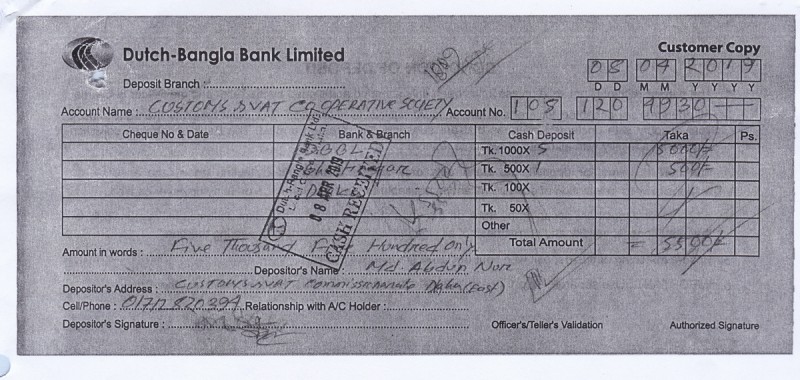 Dutch-Bangla Bank Limited
Customer Copy
08 04 2019
D D M M Y Y Y Y
Deposit Branch :
Account Name : CUSTOMS, VAT CO-OPERATIVE SOCIETY Account No. 105 120 4930
Cheque No & Date Bank & Branch Cash Deposit Taka Ps.
Tk. 1000X 5 5000/=
Tk. 500X 1 500/=
Tk. 100X
Tk. 50X
Other
Total Amount = 5500/=
Dutch-Bangla Bank Ltd.
08 APR 2019
CASH RECEIVED
Amount in words : Five Thousand Five Hundred Only
Depositor's Name : Md. Abdun Nur
Depositor's Address : CUSTOMS, VAT Commissionarate Dhaka (East)
Cell/Phone : 01712 820394 Relationship with A/C Holder :
Depositor's Signature :
Officer's/Teller's Validation
Authorized Signature